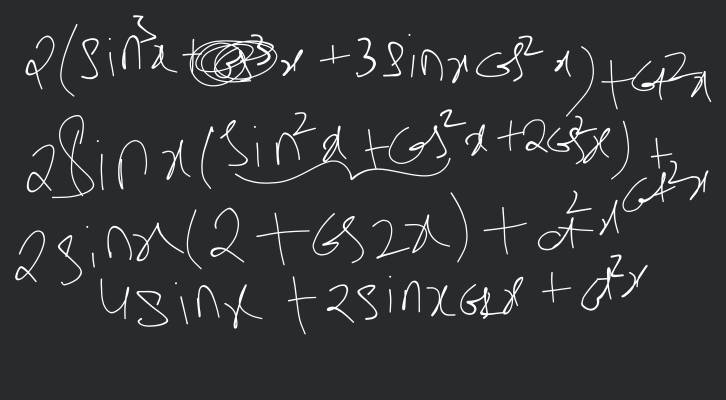 2(sin³x + x + 3 sinx cos²x) + cot²x
2 sinx (sin²x + cos²x + 2cos²x) + cot²x
2 sinx (2 + cos2x) + cot²x
4 sinx + 2 sinx cos2x + cot²x